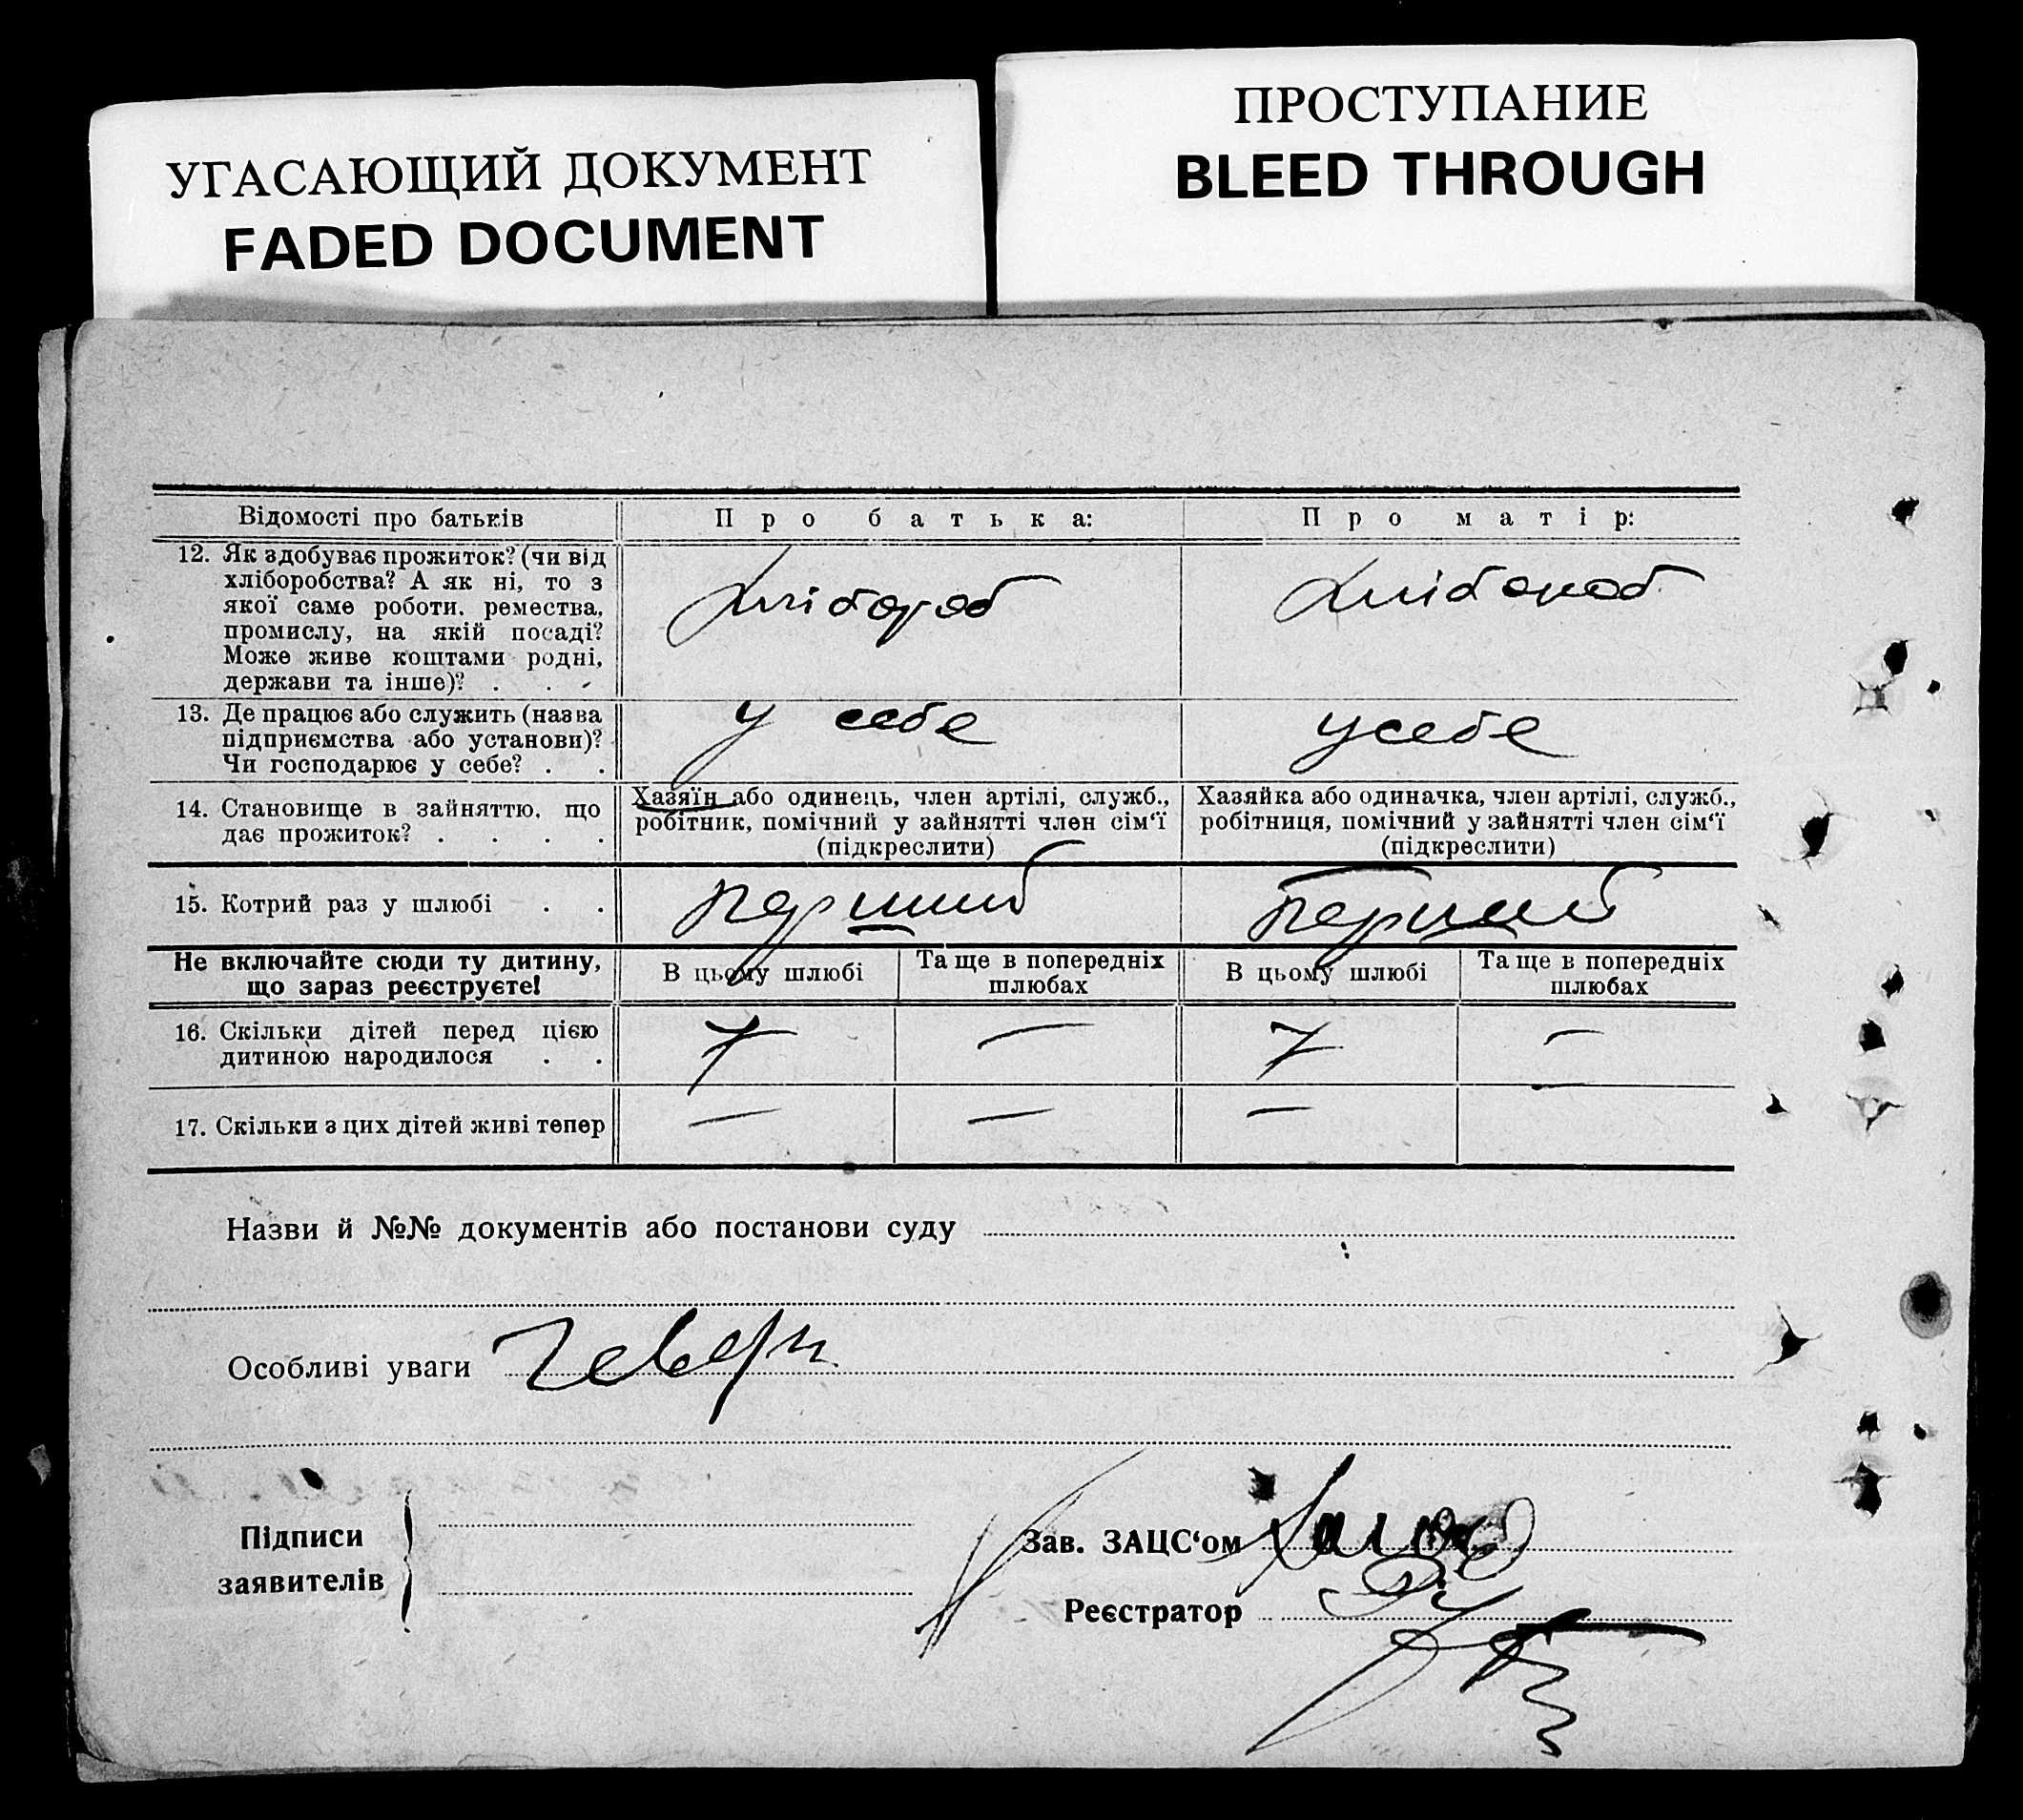 УГАСАЮЩИЙ ДОКУМЕНТ
FADED DOCUMENT
ПРОСТУПАНИЕ
BLEED THROUGH
Відомості про батьків
Про батька:
Про матір:
12. Як здобуває прожиток? (чи від
хліборобства? А як ні, то з
якої саме роботи, ремества,
промислу, на якій посаді?
Може живе коштами родні,
держави та інше)? . . .
хлібороб
хлібороб
13. Де працює або служить (назва
підприємства або установи)?
Чи господарює у себе? . .
у себе
у себе
14. Становище в зайняттю, що
дає прожиток? . . . .
Хазяїн або одинець, член артілі, служб.,
робітник, помічний у зайнятті член сім'ї
(підкреслити)
Хазяйка або одиначка, член артілі, служб.,
робітниця, помічний у зайнятті член сім'ї
(підкреслити)
15. Котрий раз у шлюбі . .
перший
перший
Не включайте сюди ту дитину,
що зараз реєструєте!
В цьому шлюбі
Та ще в попередніх
шлюбах
В цьому шлюбі
Та ще в попередніх
шлюбах
16. Скільки дітей перед цією
дитиною народилося . .
7
—
7
—
17. Скільки з цих дітей живі тепер
—
—
—
—
Назви й №№ документів або постанови суду
Особливі уваги
Підписи
заявителів
Зав. ЗАЦС'ом
Реєстратор